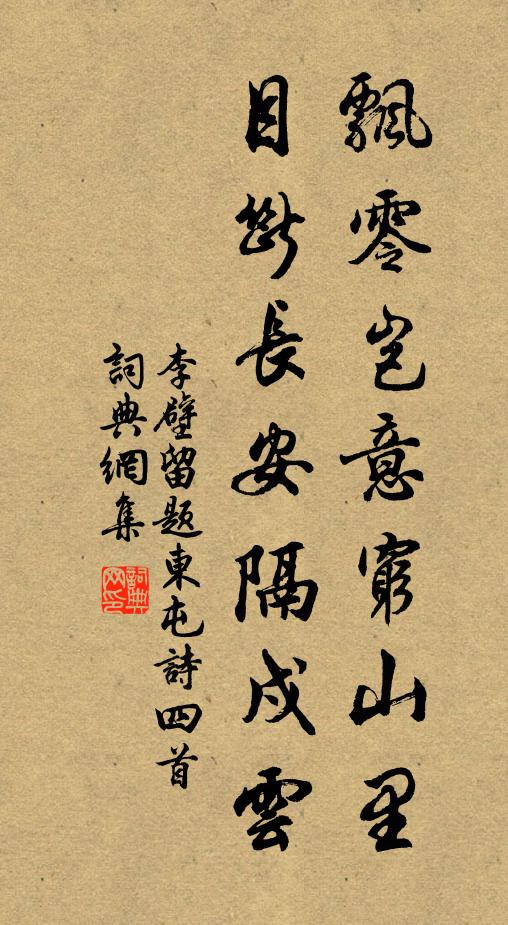 飄零豈意窮山里
目斷長安隔戍雲
李壁留題東屯詩四首
詞典網集
詞典网印